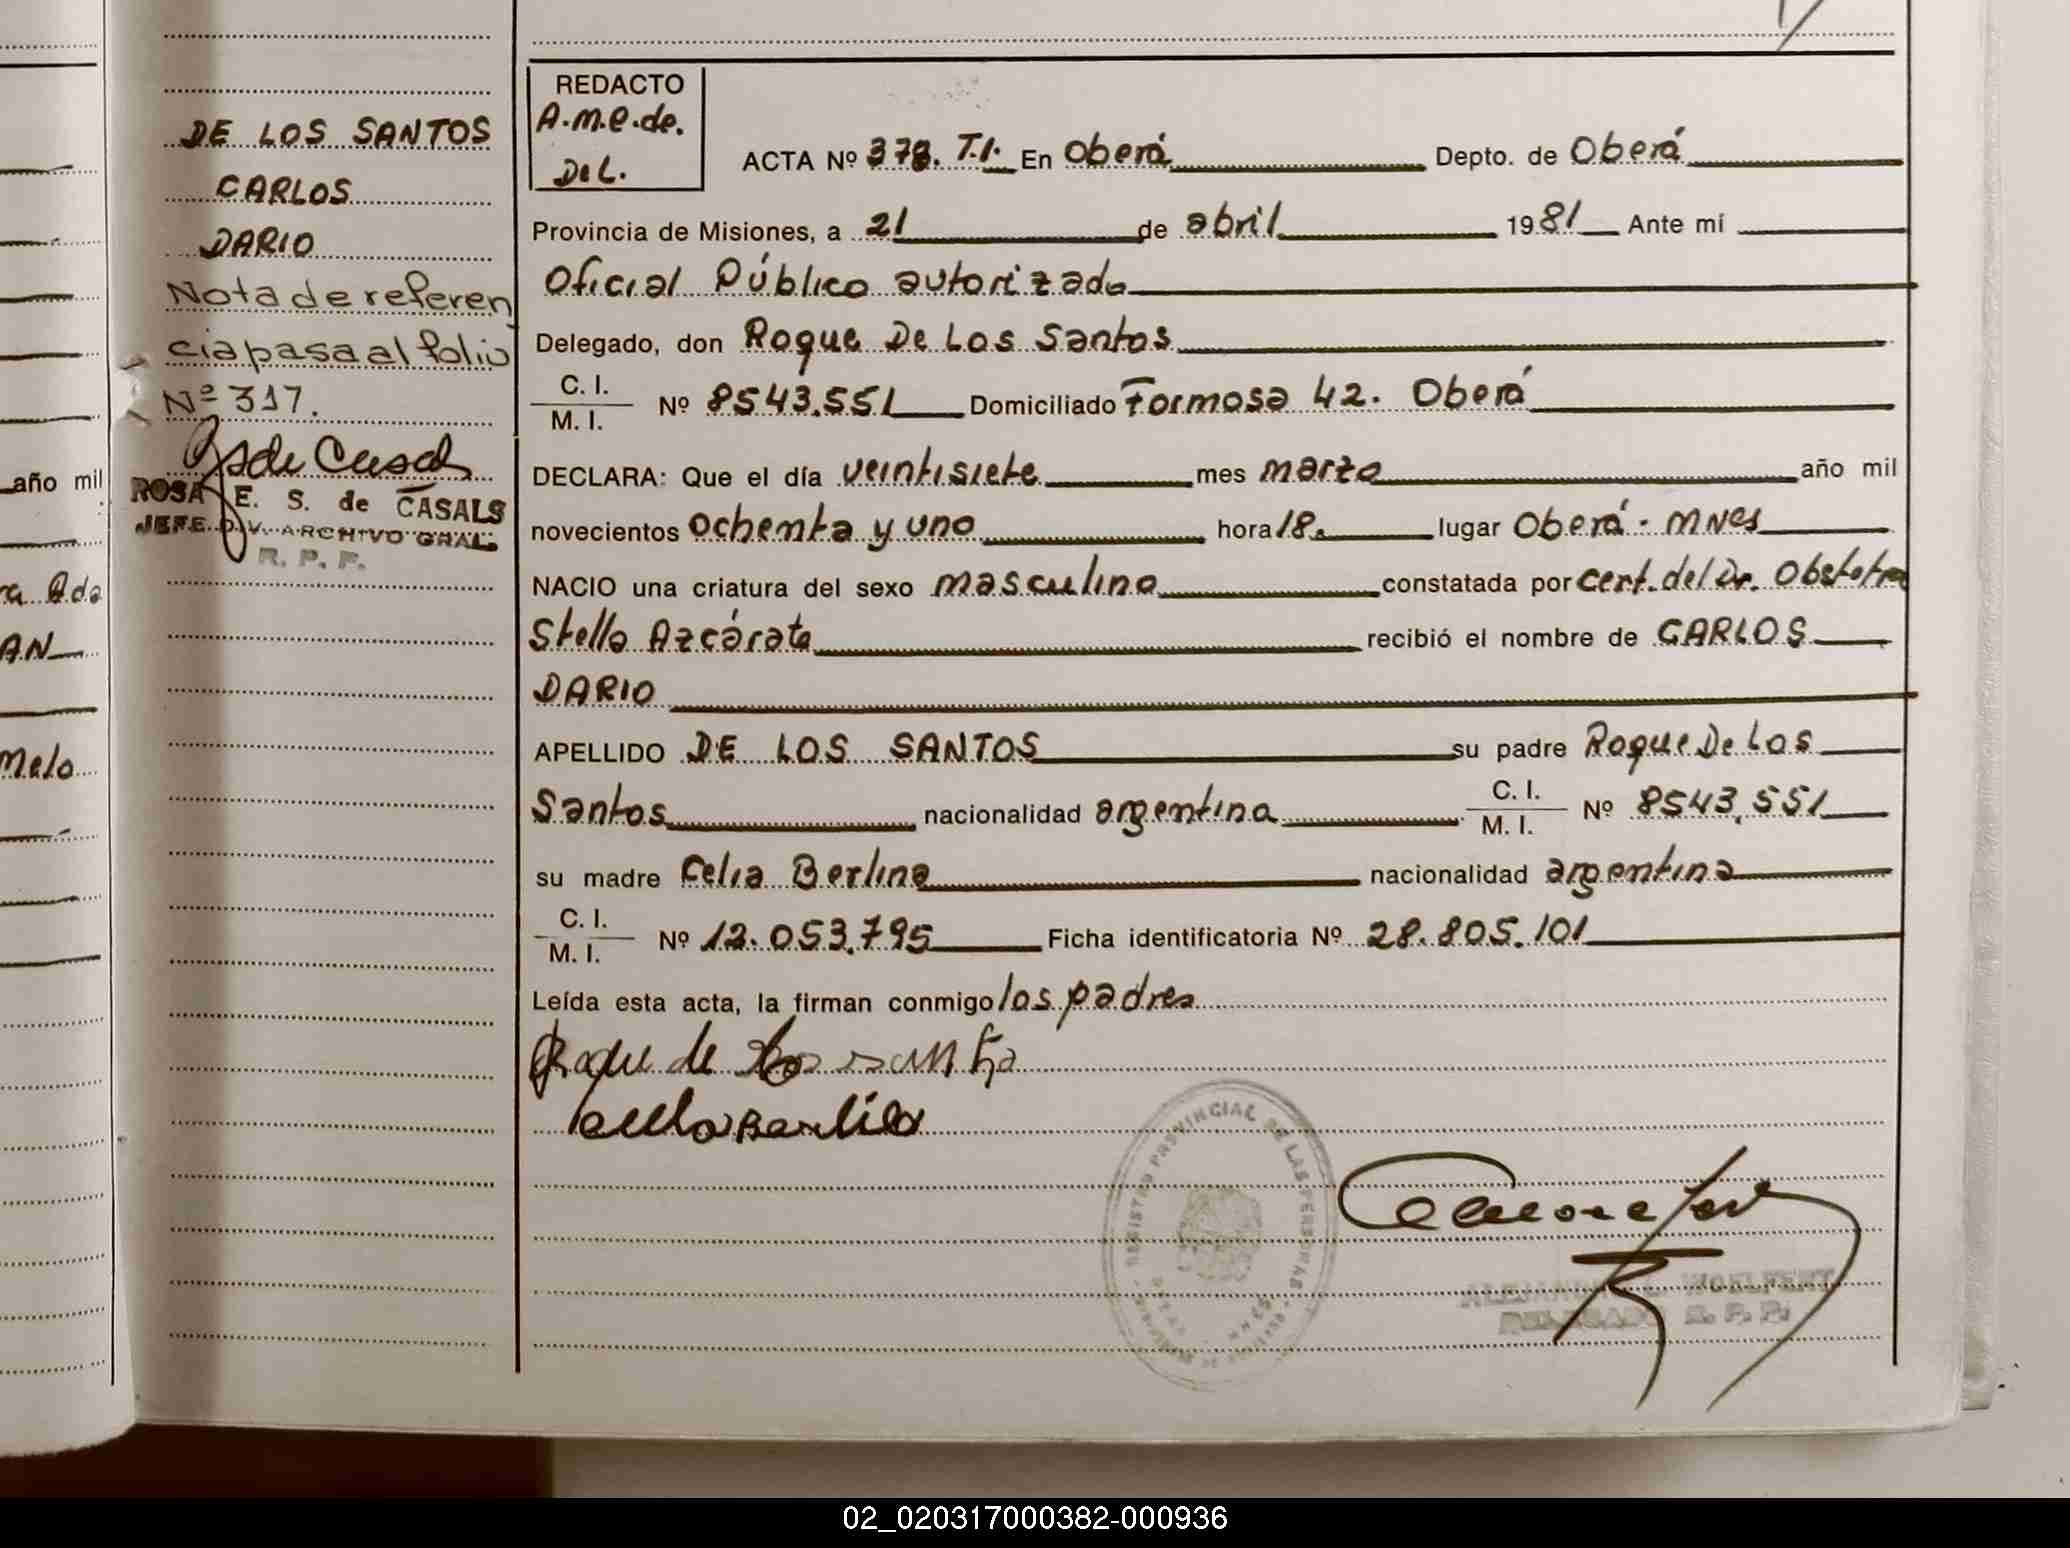 DE LOS SANTOS
CARLOS
DARIO
Nota de referen
cia pasa al folio
Nº 317.
ROSA E. S. de CASALS
JEFE DIV. ARCHIVO GRAL.
R. P. P.
año mil
AN
Melo
REDACTO
A.M.e.de.
Del.
ACTA Nº 378. T.I. En Oberá Depto. de Oberá
Provincia de Misiones, a 21 de abril 1981 Ante mí
Oficial Público autorizado
Delegado, don Roque De Los Santos
C. I.
M. I. Nº 8543.551 Domiciliado Formosa 42. Oberá
DECLARA: Que el día veintisiete mes marzo año mil
novecientos ochenta y uno hora 18. lugar Oberá - Mnes
NACIO una criatura del sexo masculino constatada por cert. del Dr. Obstetra
Stella Azcárate recibió el nombre de CARLOS
DARIO
APELLIDO DE LOS SANTOS su padre Roque De Los
Santos nacionalidad argentina C. I. M. I. Nº 8543.551
su madre Celia Berlina nacionalidad argentina
C. I.
M. I. Nº 12.053.795 Ficha identificatoria Nº 28.805.101
Leída esta acta, la firman conmigo los padres
Roque de los santo
REGISTRO PROVINCIAL DE LAS PERSONAS
DELEGADO R. P. P.
02_020317000382-000936